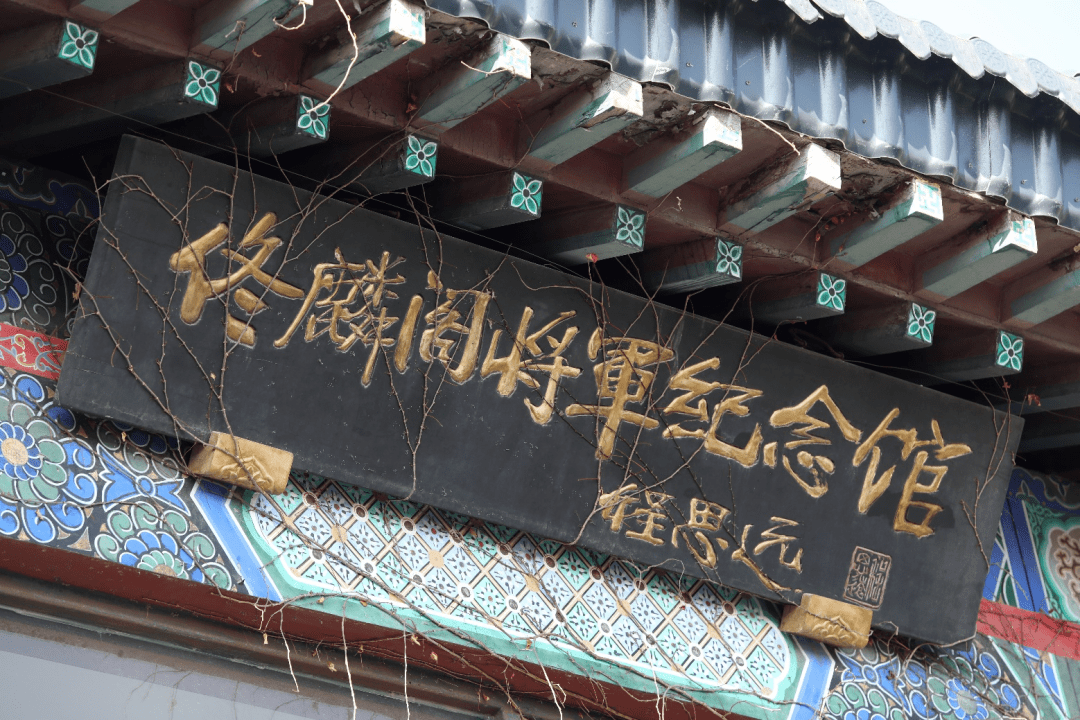 佟麟阁将軍纪念馆
程思远